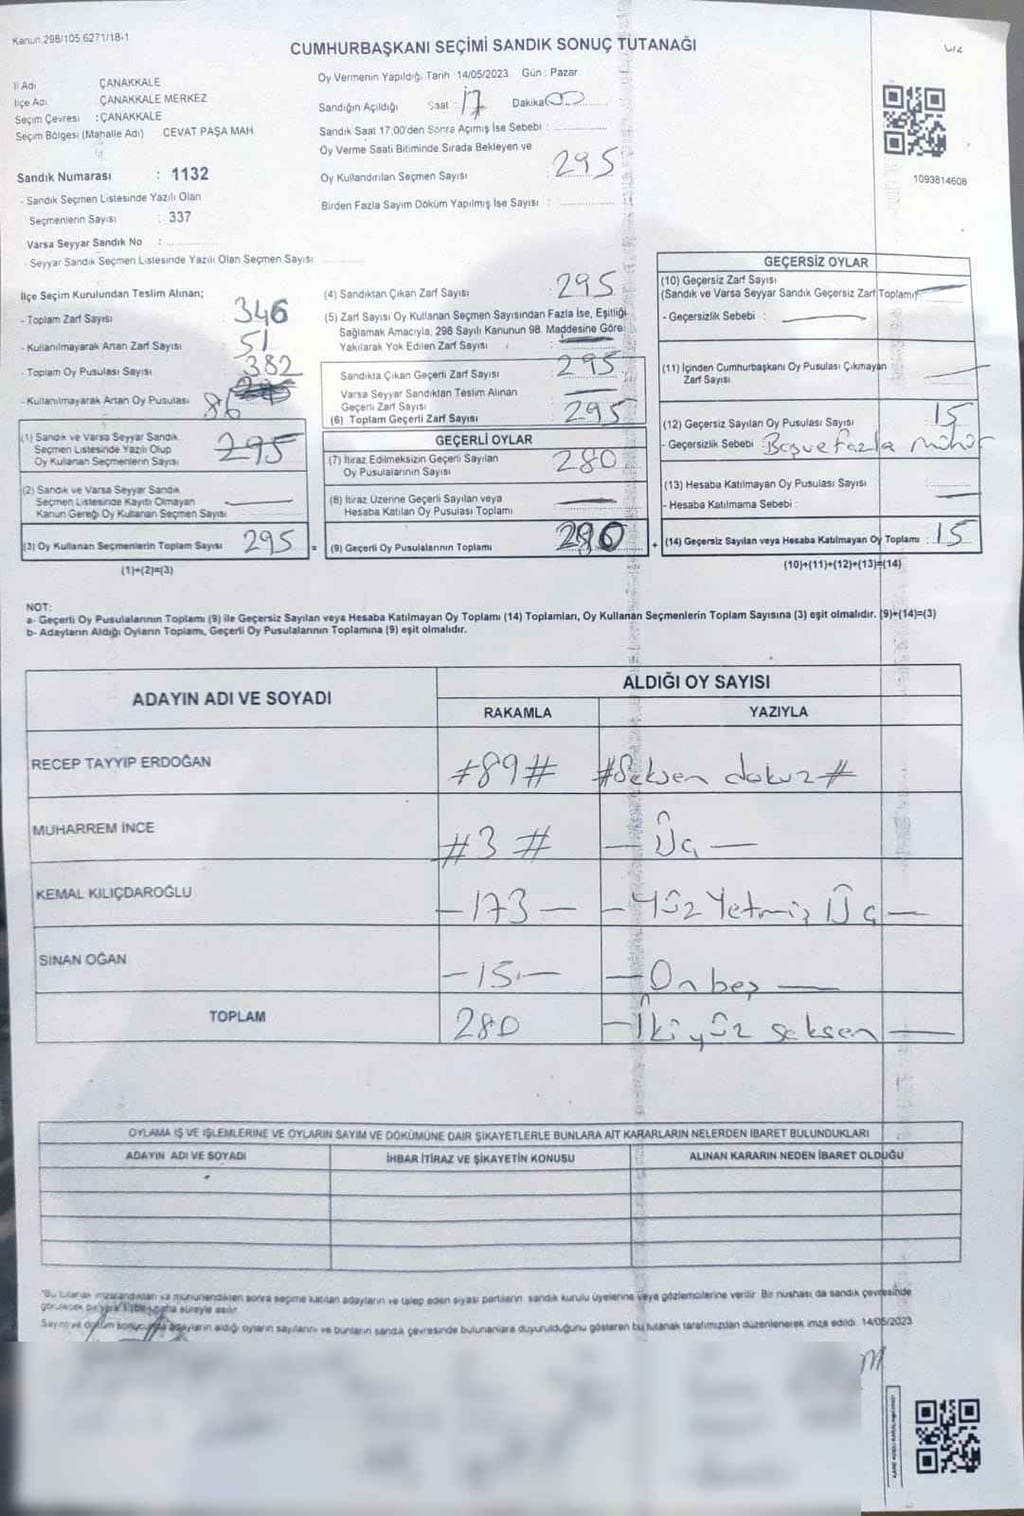 Kanun 298/105 6271/18-1
CUMHURBAŞKANI SEÇİMİ SANDIK SONUÇ TUTANAĞI
İl Adı ÇANAKKALE
İlçe Adı ÇANAKKALE MERKEZ
Seçim Çevresi : ÇANAKKALE
Seçim Bölgesi (Mahalle Adı) CEVAT PAŞA MAH.
Sandık Numarası : 1132
- Sandık Seçmen Listesinde Yazılı Olan
Seçmenlerin Sayısı : 337
Varsa Seyyar Sandık No :
- Seyyar Sandık Seçmen Listesinde Yazılı Olan Seçmen Sayısı
Oy Vermenin Yapıldığı, Tarih 14/05/2023 Gün : Pazar
Sandığın Açıldığı Saat : 17 Dakika 00
Sandık Saat 17:00'den Sonra Açımış İse Sebebi :
Oy Verme Saati Bitiminde Sırada Bekleyen ve
Oy Kullandırılan Seçmen Sayısı 295
Birden Fazla Sayım Döküm Yapılmış İse Sayısı :
1093814608
İlçe Seçim Kurulundan Teslim Alınan;
- Toplam Zarf Sayısı 346
- Kullanılmayarak Artan Zarf Sayısı 51
- Toplam Oy Pusulası Sayısı 382
- Kullanılmayarak Artan Oy Pusulası 86
(1) Sandık ve Varsa Seyyar Sandık
Seçmen Listesinde Yazılı Olup
Oy Kullanan Seçmenlerin Sayısı 295
(2) Sandık ve Varsa Seyyar Sandık
Seçmen Listesinde Kayıtlı Olmayan
Kanun Gereği Oy Kullanan Seçmen Sayısı
(3) Oy Kullanan Seçmenlerin Toplam Sayısı 295
(1)+(2)=(3)
(4) Sandıktan Çıkan Zarf Sayısı 295
(5) Zarf Sayısı Oy Kullanan Seçmen Sayısından Fazla İse, Eşitliği
Sağlamak Amacıyla, 298 Sayılı Kanunun 98. Maddesine Göre
Yakılarak Yok Edilen Zarf Sayısı :
Sandıkta Çıkan Geçerli Zarf Sayısı 295
Varsa Seyyar Sandıktan Teslim Alınan
Geçerli Zarf Sayısı
(6) Toplam Geçerli Zarf Sayısı 295
GEÇERLİ OYLAR
(7) İtiraz Edilmeksizin Geçerli Sayılan
Oy Pusulalarının Sayısı 280
(8) İtiraz Üzerine Geçerli Sayılan veya
Hesaba Katılan Oy Pusulası Toplamı
= (9) Geçerli Oy Pusulalarının Toplamı 280
GEÇERSİZ OYLAR
(10) Geçersiz Zarf Sayısı
(Sandık ve Varsa Seyyar Sandık Geçersiz Zarf Toplamı)
- Geçersizlik Sebebi :
(11) İçinden Cumhurbaşkanı Oy Pusulası Çıkmayan
Zarf Sayısı
(12) Geçersiz Sayılan Oy Pusulası Sayısı 15
- Geçersizlik Sebebi Boş ve Fazla mühür
(13) Hesaba Katılmayan Oy Pusulası Sayısı
- Hesaba Katılmama Sebebi :
+ (14) Geçersiz Sayılan veya Hesaba Katılmayan Oy Toplamı : 15
(10)+(11)+(12)+(13)=(14)
NOT:
a- Geçerli Oy Pusulalarının Toplamı (9) ile Geçersiz Sayılan veya Hesaba Katılmayan Oy Toplamı (14) Toplamları, Oy Kullanan Seçmenlerin Toplam Sayısına (3) eşit olmalıdır. (9)+(14)=(3)
b- Adayların Aldığı Oyların Toplamı, Geçerli Oy Pusulalarının Toplamına (9) eşit olmalıdır.
ADAYIN ADI VE SOYADI
ALDIĞI OY SAYISI
RAKAMLA YAZIYLA
RECEP TAYYİP ERDOĞAN #89# #Seksen dokuz#
MUHARREM İNCE #3# — Üç —
KEMAL KILIÇDAROĞLU -173- - Yüz Yetmiş Üç —
SİNAN OĞAN -15- — On beş —
TOPLAM 280 - İki yüz seksen —
OYLAMA İŞ VE İŞLEMLERİNE VE OYLARIN SAYIM VE DÖKÜMÜNE DAİR ŞİKAYETLERLE BUNLARA AİT KARARLARIN NELERDEN İBARET BULUNDUKLARI
ADAYIN ADI VE SOYADI İHBAR İTİRAZ VE ŞİKAYETİN KONUSU ALINAN KARARIN NEDEN İBARET OLDUĞU
"Bu tutanak imzalandıktan ve mühürlendikten sonra seçime katılan adayların ve talep eden siyasi partilerin sandık kurulu üyelerine veya gözlemcilerine verilir. Bir nüshası da sandık çevresinde
görülecek bir yere bir hafta süreyle asılır.
Sayım ve döküm sonucunda adayların aldığı oyların sayılarını ve bunların sandık çevresinde bulunanlara duyurulduğunu gösteren bu tutanak tarafımızdan düzenlenerek imza edildi. 14/05/2023